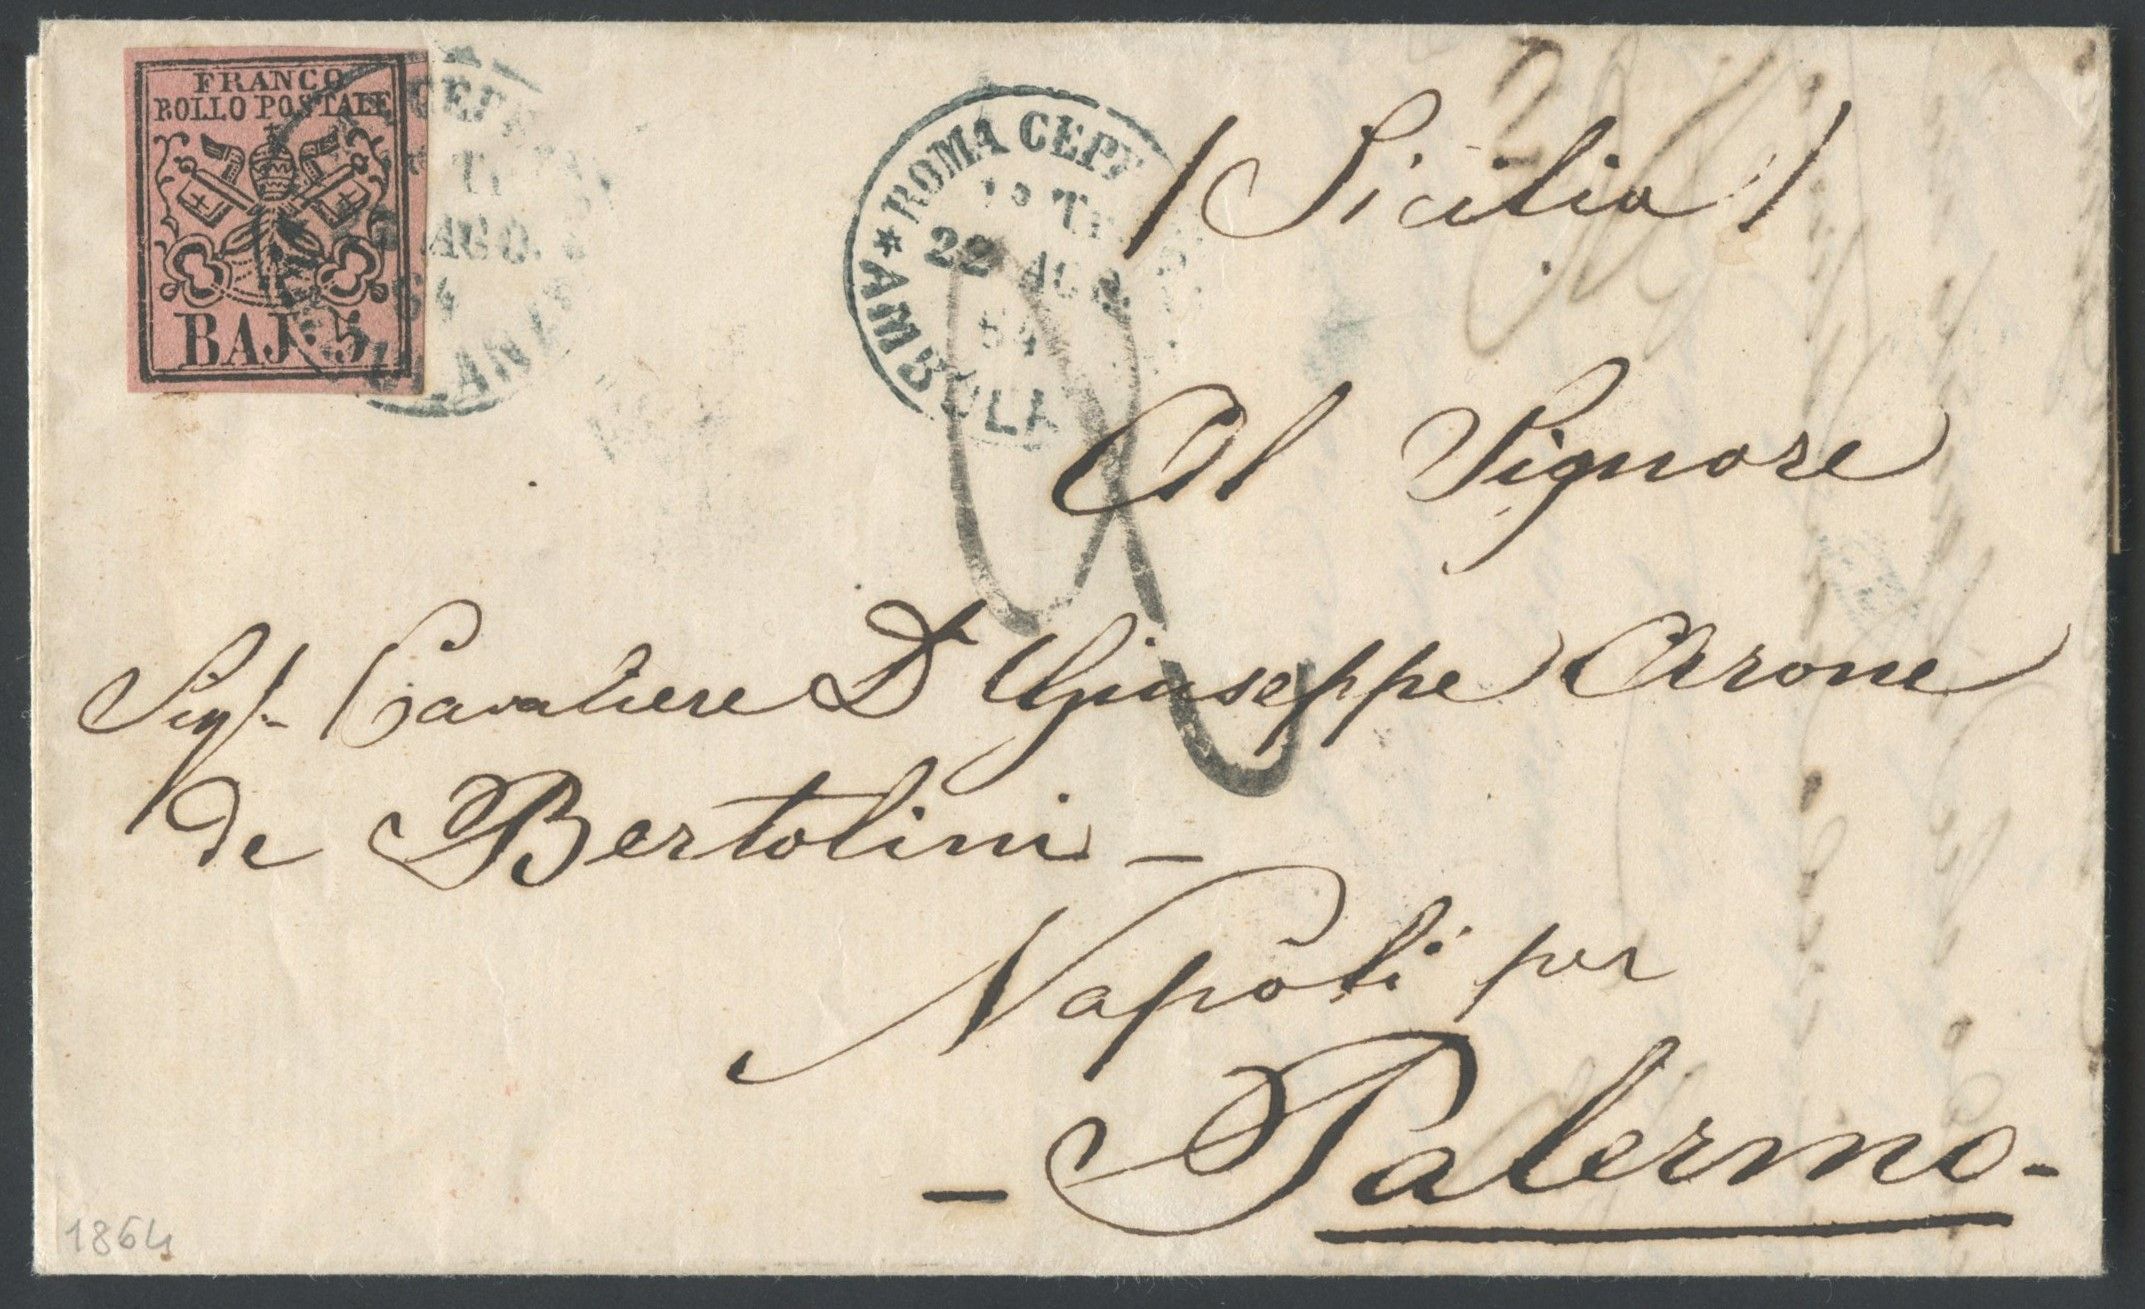 FRANCO
BOLLO POSTALE
BAJ. 5
AGO.
64
ROMA CEPR
1º
22 AGO
64
AMBULA
/ Sicilia /
Al Signore
Sigr. Cavaliere Dn Giuseppe Arone
de Bertolini –
Napoli per
– Palermo –
1864